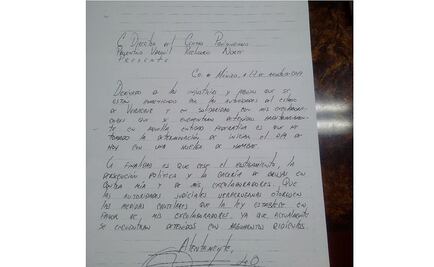 C. Director del Centro Penitenciario
Preventivo Varonil Reclusorio Norte
PRESENTE
Cd. de México, a de 2017
Derivado a las injusticias y abusos que se
están cometiendo por las autoridades del estado
de Veracruz y en solidaridad con mis excolaboradores
que se encuentran detenidos
en aquella entidad federativa es que he
tomado la determinación de iniciar el día de
hoy con una huelga de hambre.
La finalidad es que cese el hostigamiento, la
persecución política y la cacería de brujas en
contra mía y de mis excolaboradores. Que
las autoridades judiciales veracruzanas otorguen
las medidas cautelares que la ley establece en
favor de mis excolaboradores ya que actualmente
se encuentran detenidos con argumentos ridículos.
Atentamente,